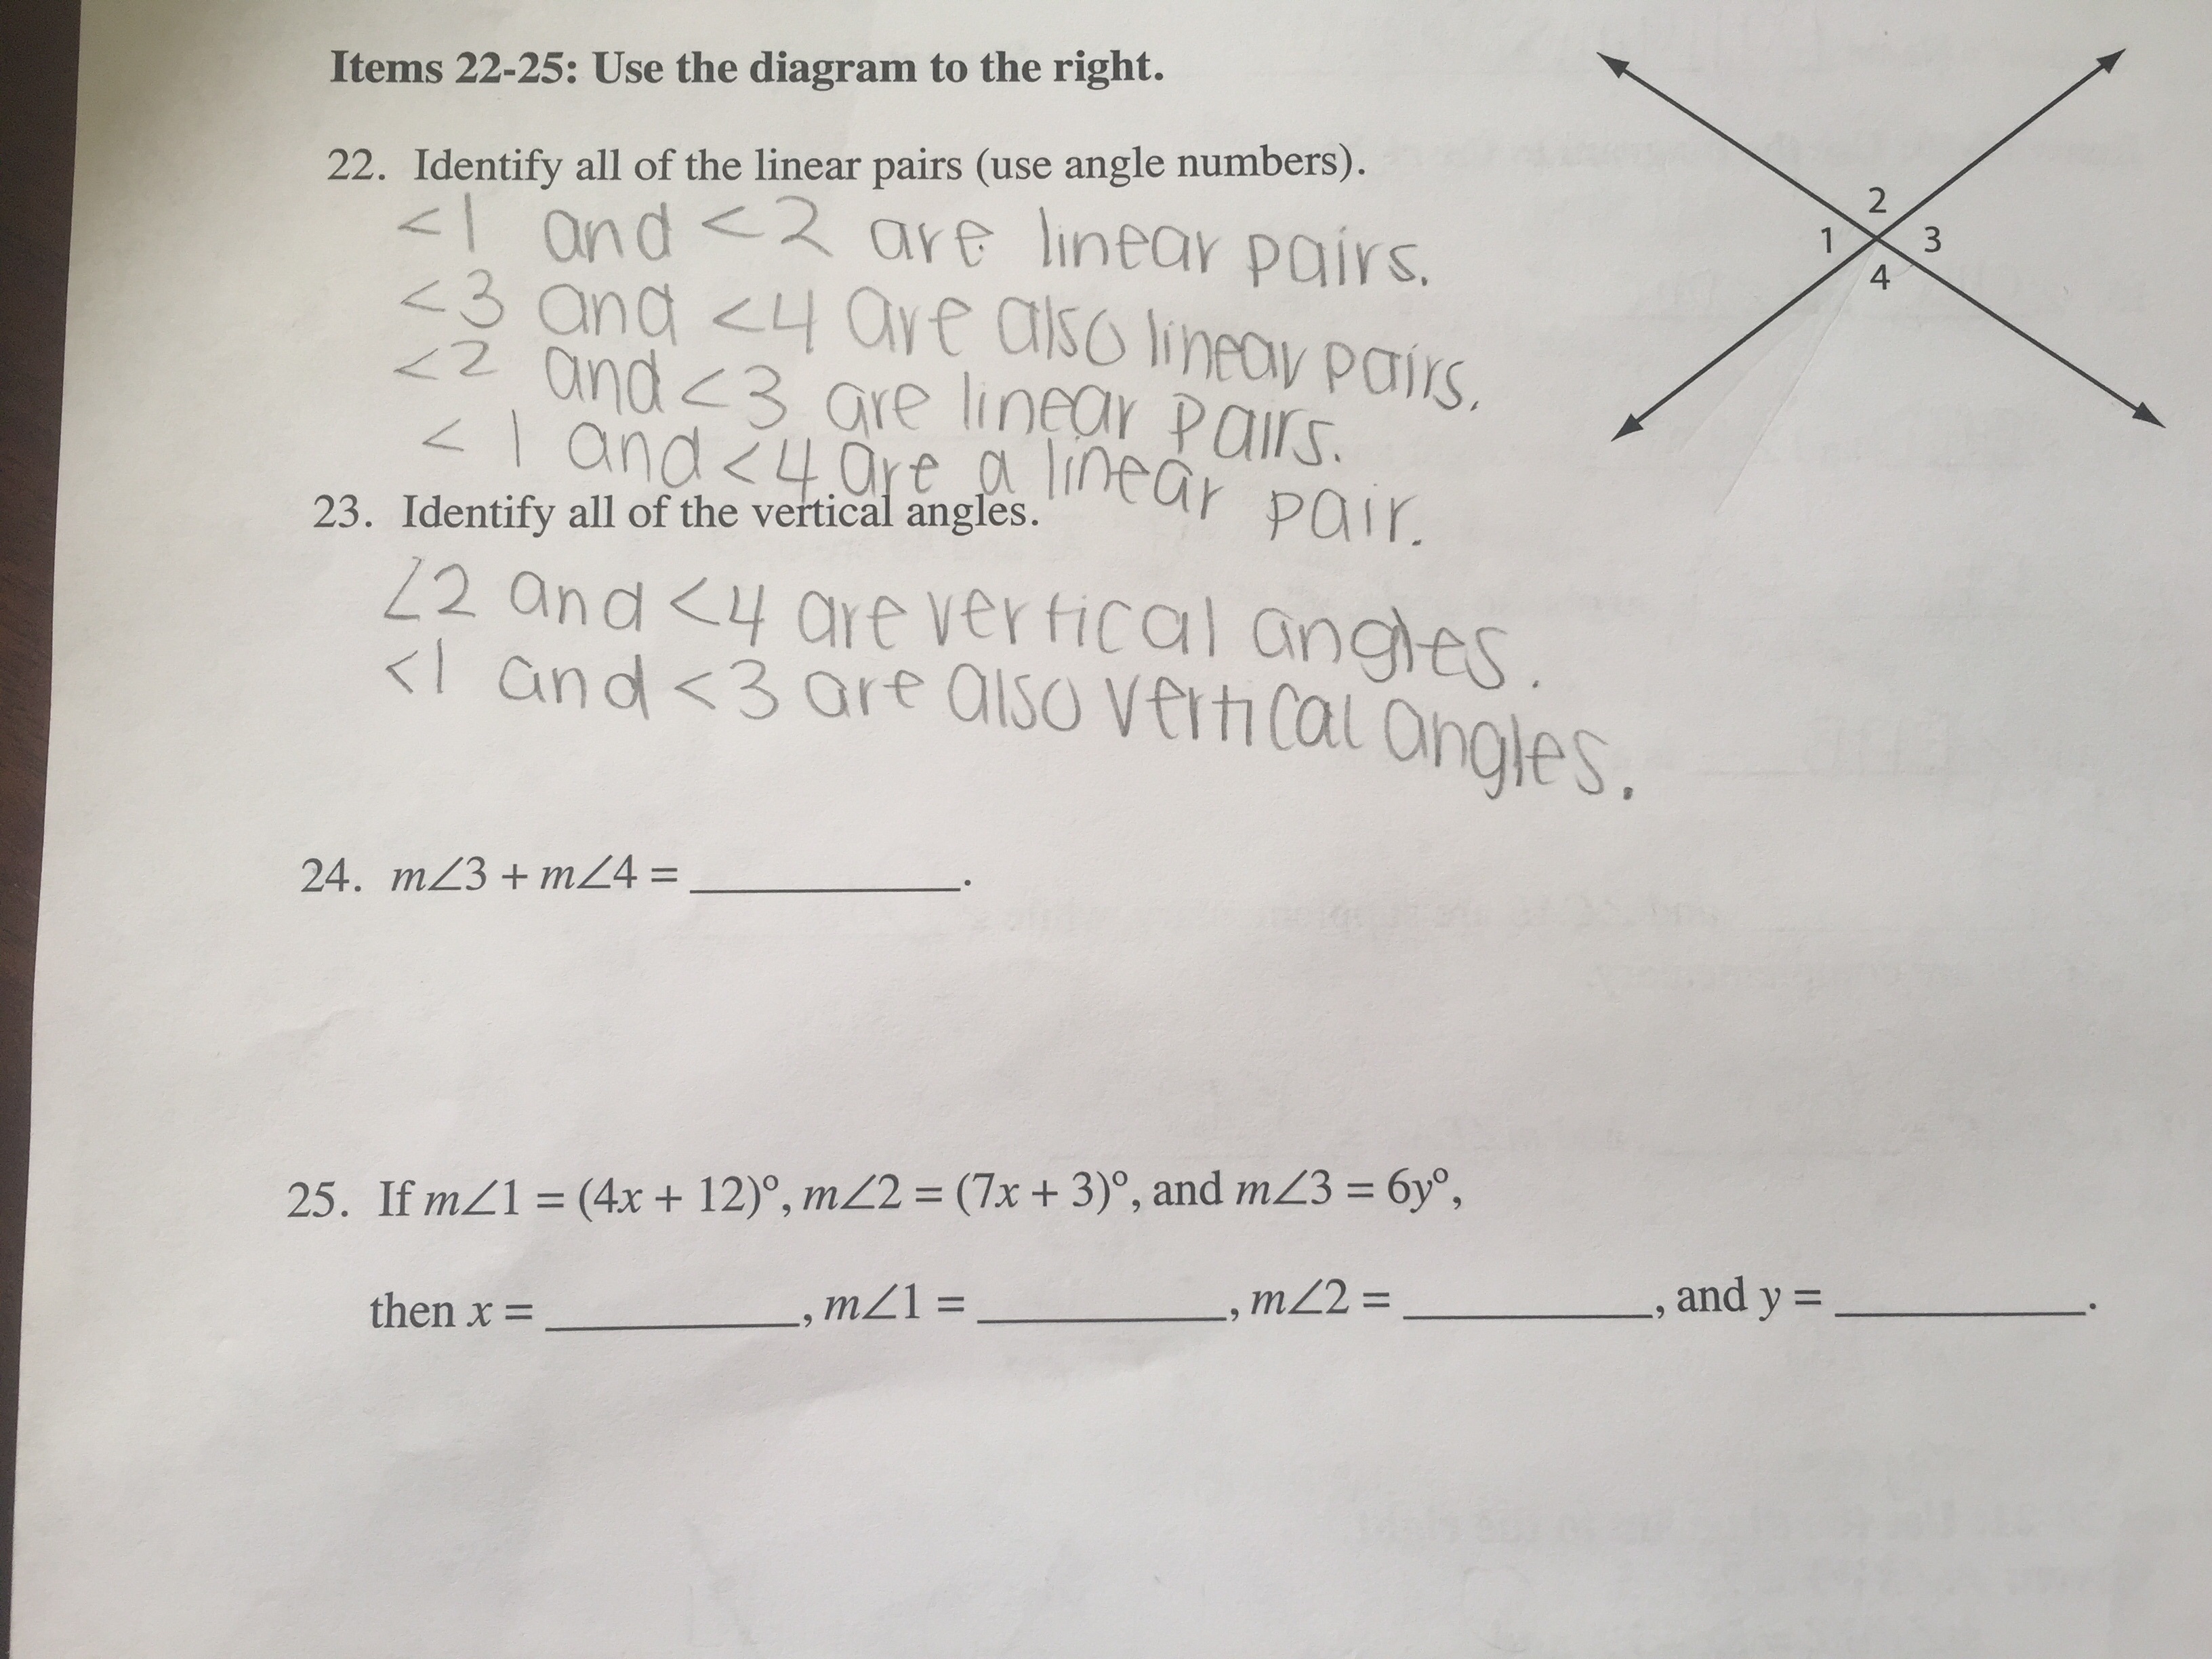 Items 22-25: Use the diagram to the right.
22. Identify all of the linear pairs (use angle numbers).
<1 and <2 are linear pairs.
<3 and <4 are also linear pairs.
<2 and <3 are linear pairs.
<1 and <4 are a linear pair.
2
1 3
4
23. Identify all of the vertical angles.
∠2 and <4 are vertical angles.
<1 and <3 are also vertical angles.
24. m∠3 + m∠4 = ________.
25. If m∠1 = (4x + 12)º, m∠2 = (7x + 3)º, and m∠3 = 6yº,
then x = ________, m∠1 = ________, m∠2 = ________, and y = ________.